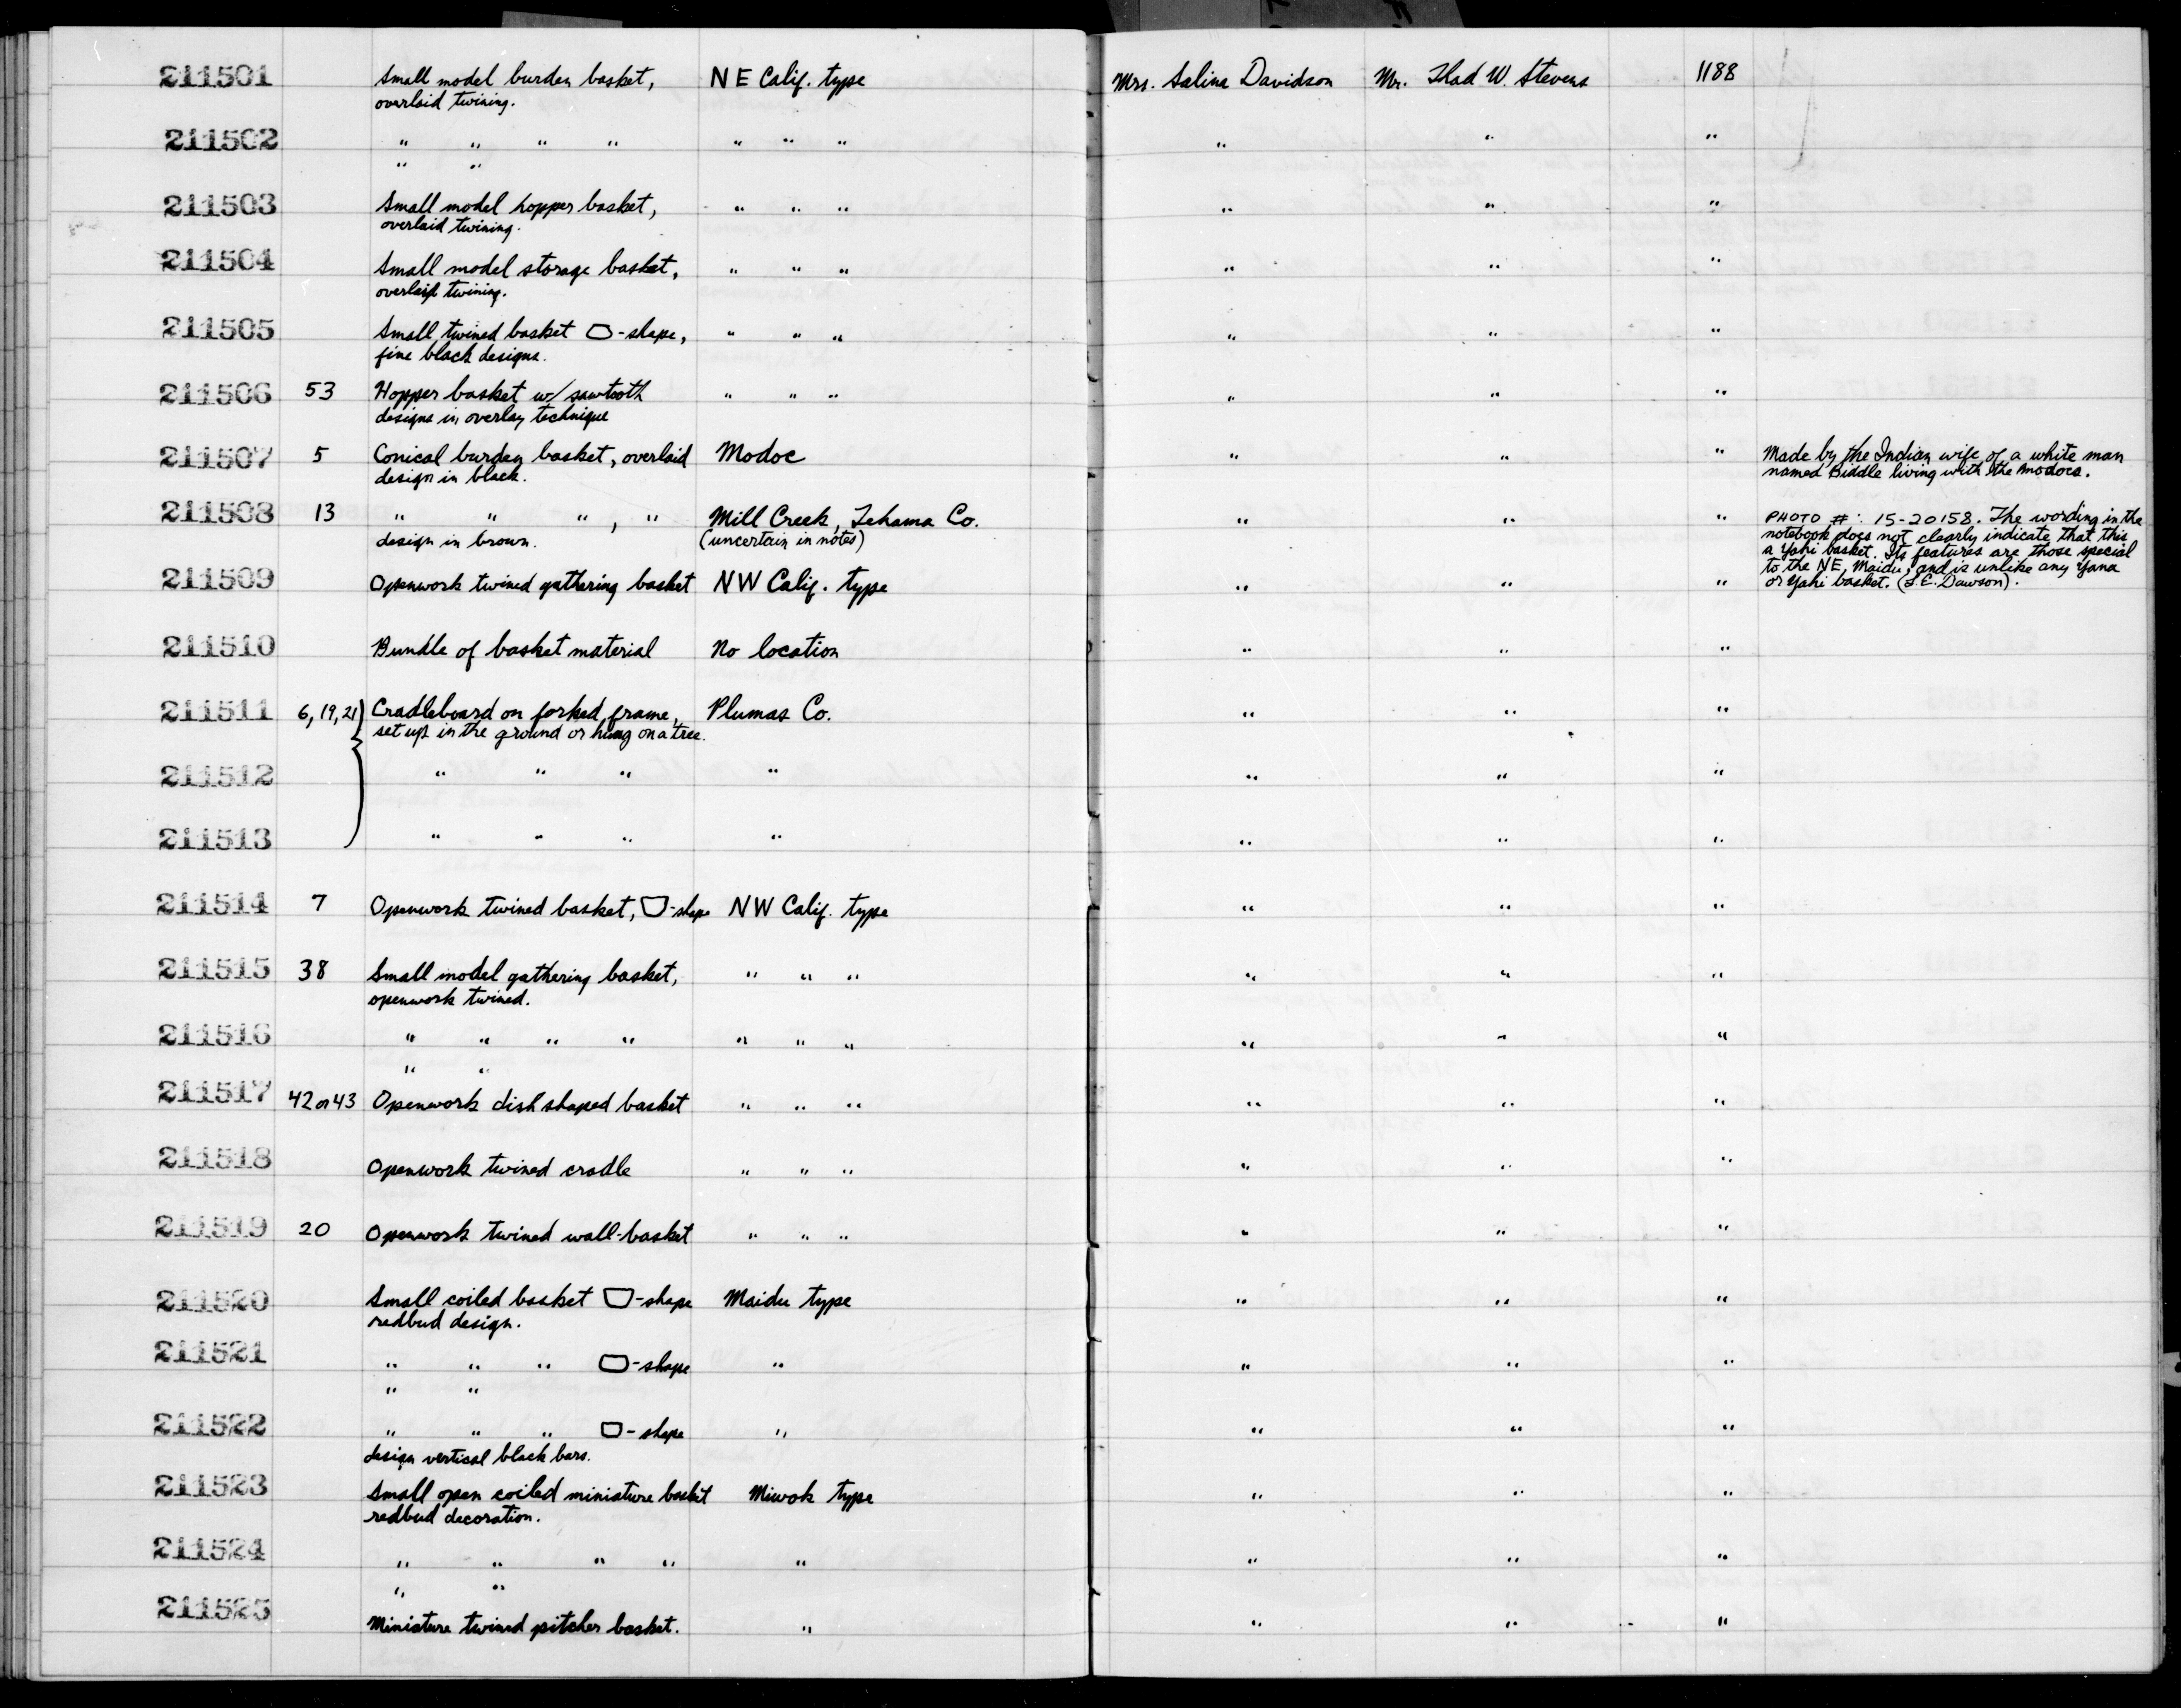 211501 Small model burden basket, NE Calif. type Mrs. Salina Davidson Mr. Thad W. Stevens 1188
overlaid twining.
211502 " " " " " " " " " "
" "
211503 Small model hopper basket, " " " " " "
overlaid twining.
211504 Small model storage basket, " " " " " "
overlaid twining.
211505 Small twined basket -shape, " " " " " "
fine black designs.
211506 53 Hopper basket w/ sawtooth " " " " " "
designs in overlay technique
211507 5 Conical burden basket, overlaid Modoc " " " Made by the Indian wife of a white man
design in black. named Biddle living with the Modocs.
211508 13 " " " , " Mill Creek, Tehama Co. " " " PHOTO #: 15-20158. The wording in the
design in brown. (uncertain in notes) notebook does not clearly indicate that this
a Yahi basket. Its features are those special
to the NE, Maidu, and is unlike any Yana
211509 Openwork twined gathering basket NW Calif. type " " " or Yahi basket. (L.E. Dawson).
211510 Bundle of basket material No location " " "
211511 6, 19, 21 Cradleboard on forked frame, Plumas Co. " " "
set up in the ground or hung on a tree.
211512 " " " " " " "
211513 " " " " " " "
211514 7 Openwork twined basket, -shape NW Calif. type " " "
211515 38 Small model gathering basket, " " " " " "
openwork twined.
211516 " " " " " " " " " "
" "
211517 42 or 43 Openwork dish shaped basket " " " " " "
211518 Openwork twined cradle " " " " " "
211519 20 Openwork twined wall-basket " " " " " "
211520 Small coiled basket -shape Maidu type " " "
redbud design.
211521 " " " -shape " " " "
" "
211522 " " " -shape " " " "
design vertical black bars.
211523 Small open coiled miniature basket Miwok type " " "
redbud decoration.
211524 " " " " " " " "
" "
211525 Miniature twined pitcher basket. " " " "